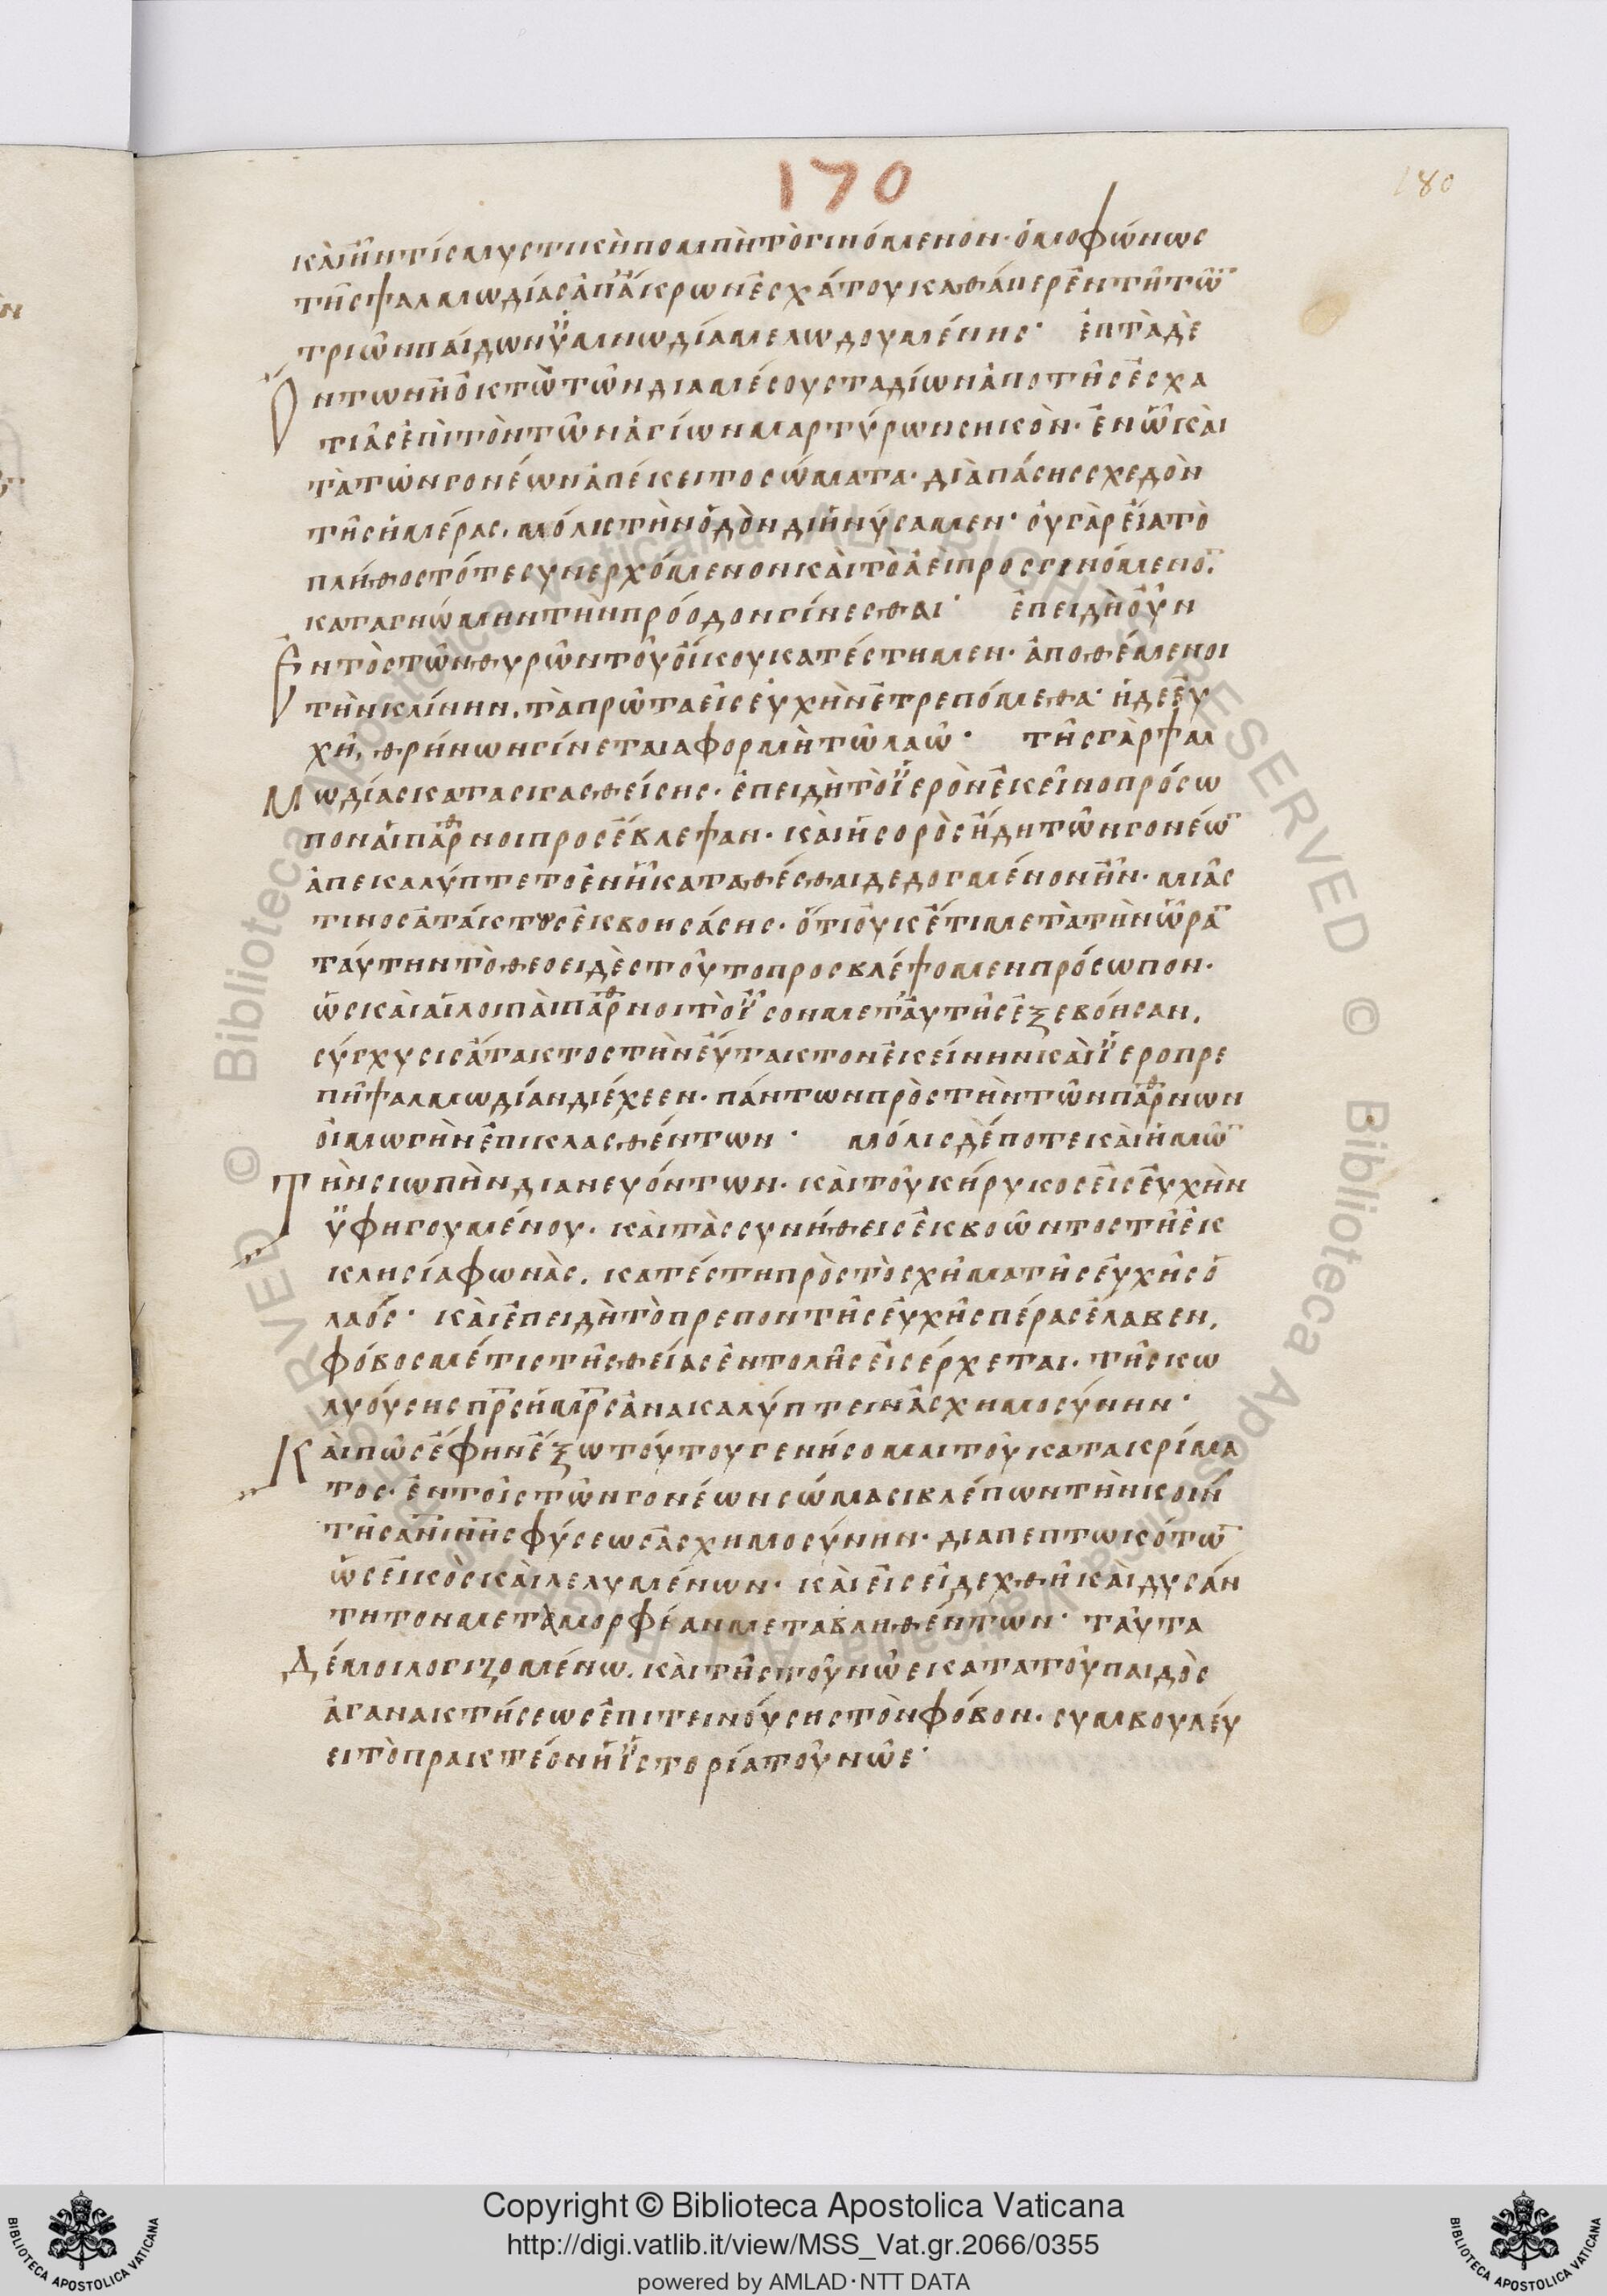 170
180
καὶ ἦν τίς μυστικὴ πομπὴ τὸ γινόμενον· ὁμοφώνως
τῆς ψαλμωδίας ἀπ' ἄκρων ἐσχάτου καθάπερ ἐν τῆ τῶ̅
τριῶν παίδων ὑμνωδία μελωδουμένης· ἑπτὰ δὲ
ὄντων ἢ ὀκτὼ τῶν διαμέσου σταδίων ἀπο τῆς ἐσχα
τιᾶς ἐπὶ τὸν τῶν ἁγίων μαρτύρων σηκὸν· ἐν ὧ καὶ
τὰ τῶν γονέων ἀπέκειτο σώματα· διὰ πάσης σχεδὸν
τῆς ἡμέρας, μόλις τὴν ὁδὸν διηνύσαμεν· οὐ γὰρ εἴα τὸ
πλῆθος τό τε συνερχόμενον καὶ τὸ ἀεὶ προσγινόμενο̅.
κατα γνώμην τὴν πρόοδον γίνεσθαι· ἐπειδὴ οὖν
ἐντὸς τῶν θυρῶν τοῦ οἴκου κατέστημεν· ἀποθέμενοι
τὴν κλίνην, τὰ πρῶτα εἰς εὐχὴν ἐτρεπόμεθα· ἡ δε εὐ
χὴ, θρήνων γίνεται αφορμὴ τῶ λαῶ· τῆς γὰρ ψαλ
μωδίας κατασιγασθείσης· ἐπειδὴ τὸ ϊερὸν ἐκεῖνο πρόσω
πον αἱ παρ̅θνοι προσέβλεψαν· καὶ ἡ σορὸς ἤδη τῶν γονέω̅
ἀπεκαλύπτετο ἐν ἧ καταθέσθαι δεδογμένον ἦν· μιᾶς
τινος ἀτάκτως ἐκβοησάσης· ὅτι οὐκ έτι μετὰ τὴν ὥρα̅
ταύτην τὸ θεοειδὲς τοῦτο προσβλέψομεν πρόσωπον·
ὡς καὶ αἱ λοιπαὶ παρ̅θνοι τὸ ϊσον μετ' αὐτῆς ἐξεβόησαν,
σύγχυσις ἄτακτος τὴν εὔτακτον ἐκείνην καὶ ϊεροπρε
πῆ ψαλμωδίαν διέχεεν· πάντων πρὸς τὴν τῶν παρ̅θνων
οἰμωγὴν ἐπικλασθέντων· μόλις δέ ποτε καὶ ἡμῶ̅
τὴν σιωπὴν διανευόντων· καὶ τοῦ κήρυκος εἰς εὐχὴν
ϋφηγουμένου· καὶ τὰς συνήθεις ἐκβοῶντος τῆ ἐκ
κλησία φωνὰς, κατέστη πρὸς τὸ σχῆμα τῆς εὐχῆς ὁ
λαός· καὶ ἐπειδὴ τὸ πρεπον τῆς εὐχῆς πέρας ἔλαβεν,
φόβος μέ τις τῆς θείας ἐντολῆς εἰσέρχεται· τῆς κω
λυούσης πρ̅ς ἢ μρ̅ς ἀνακαλύπτειν ἀσχημοσύνην·
Καὶ πῶς ἔφην ἔξω τούτου γενήσομαι τοῦ κατακρίμα
τος· ἐν τοῖς τῶν γονέων σώμασι βλέπων τὴν κοιν̅
τῆς ἀν̅ινης φύσεως ἀσχημοσύνην· διαπεπτωκότω̅
ὡς εἰκὸς καὶ λελυμένων· καὶ εἰς εἰδεχθῆ καὶ δυσάν
τητον μετὰ μορφέαν μεταβληθέντων· ταῦτα
Δέ μοι λογιζομένω, καὶ τῆς τοῦ νῶε κατα τοῦ παιδὸς
ἀγανακτήσεως ἐπιτεινούσης τὸν φόβον· συμβουλεύ
ει τὸ πρακτέον ἡ ϊστορία τοῦ νῶε·
Copyright © Biblioteca Apostolica Vaticana
http://digi.vatlib.it/view/MSS_Vat.gr.2066/0355
powered by AMLAD·NTT DATA